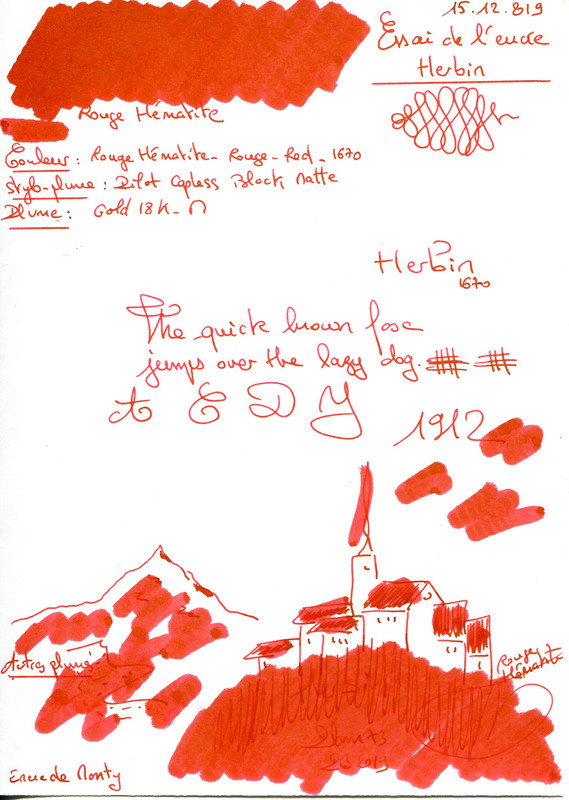 15.12.2019
Essai de l'encre
Herbin
Rouge Hématite
Couleur : Rouge Hématite - Rouge - Red - 1670
Stylo-plume : Pilot Capless Black Matte
Plume : Gold 18K - M
Herbin
1670
The quick brown fox
jumps over the lazy dog.
A E D Y
1912
Autres plumes
Rouge
Hématite
Herbin
Encre de Monty